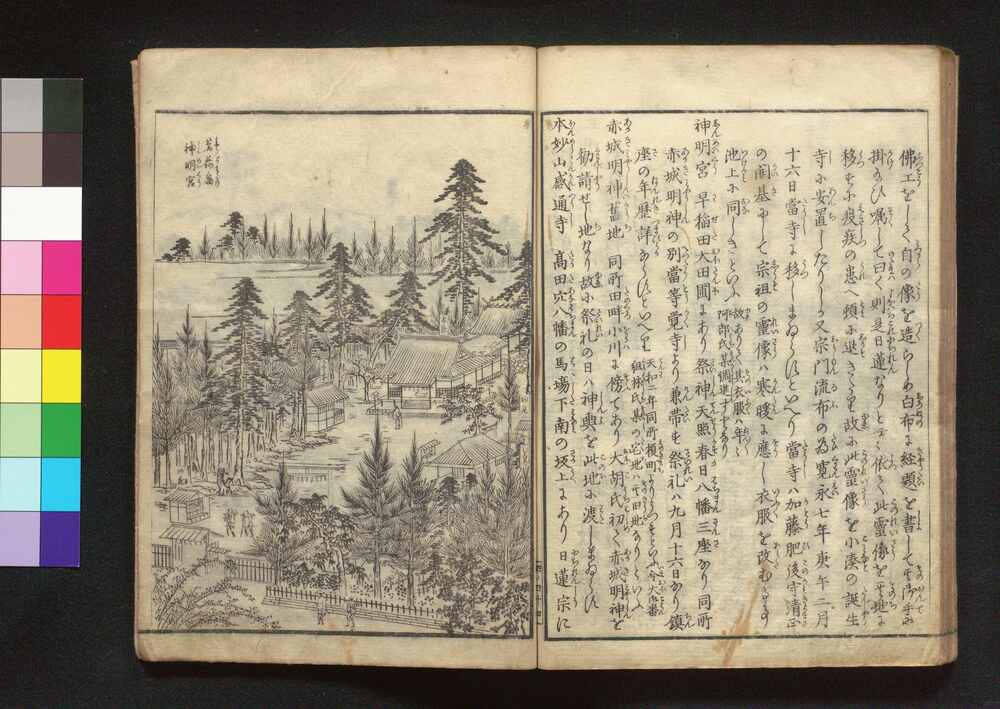 佛工をして自の像を造らしめ白布に経題を書して其御手に
掛給ひ嘱して曰く則是日蓮なりと云々依て此霊像を其地に
移すに疫疾の患頓に退きぬ故に此霊像を小湊の誕生
寺に安置したりしか又宗門流布の為寛永七年庚午二月
十六日當寺に移しまゐらすといへり當寺ハ加藤肥後守清正
の開基にして宗祖の霊像ハ寒暖に應し衣服を改む
故ありて其衣服ハ年々
阿部氏某調進す
池上に同しきといふ
神明宮 早稲田大田圃にあり祭神天照春日八幡三座なり同所
赤城明神の別當等覚寺より兼帯す祭礼ハ九月十六日なり鎮
座の年歴詳ならすといへり
天和二年同所榎町より
赤城明神舊地 同所田町小川に傍てあり大胡氏初て赤城明神を
勧請せし地なり故に祭礼の日ハ神輿を此地に渡しまゐらす
本妙山感通寺 高田穴八幡の馬場下南の坂上にあり日蓮宗に
茗荷畠
神明宮